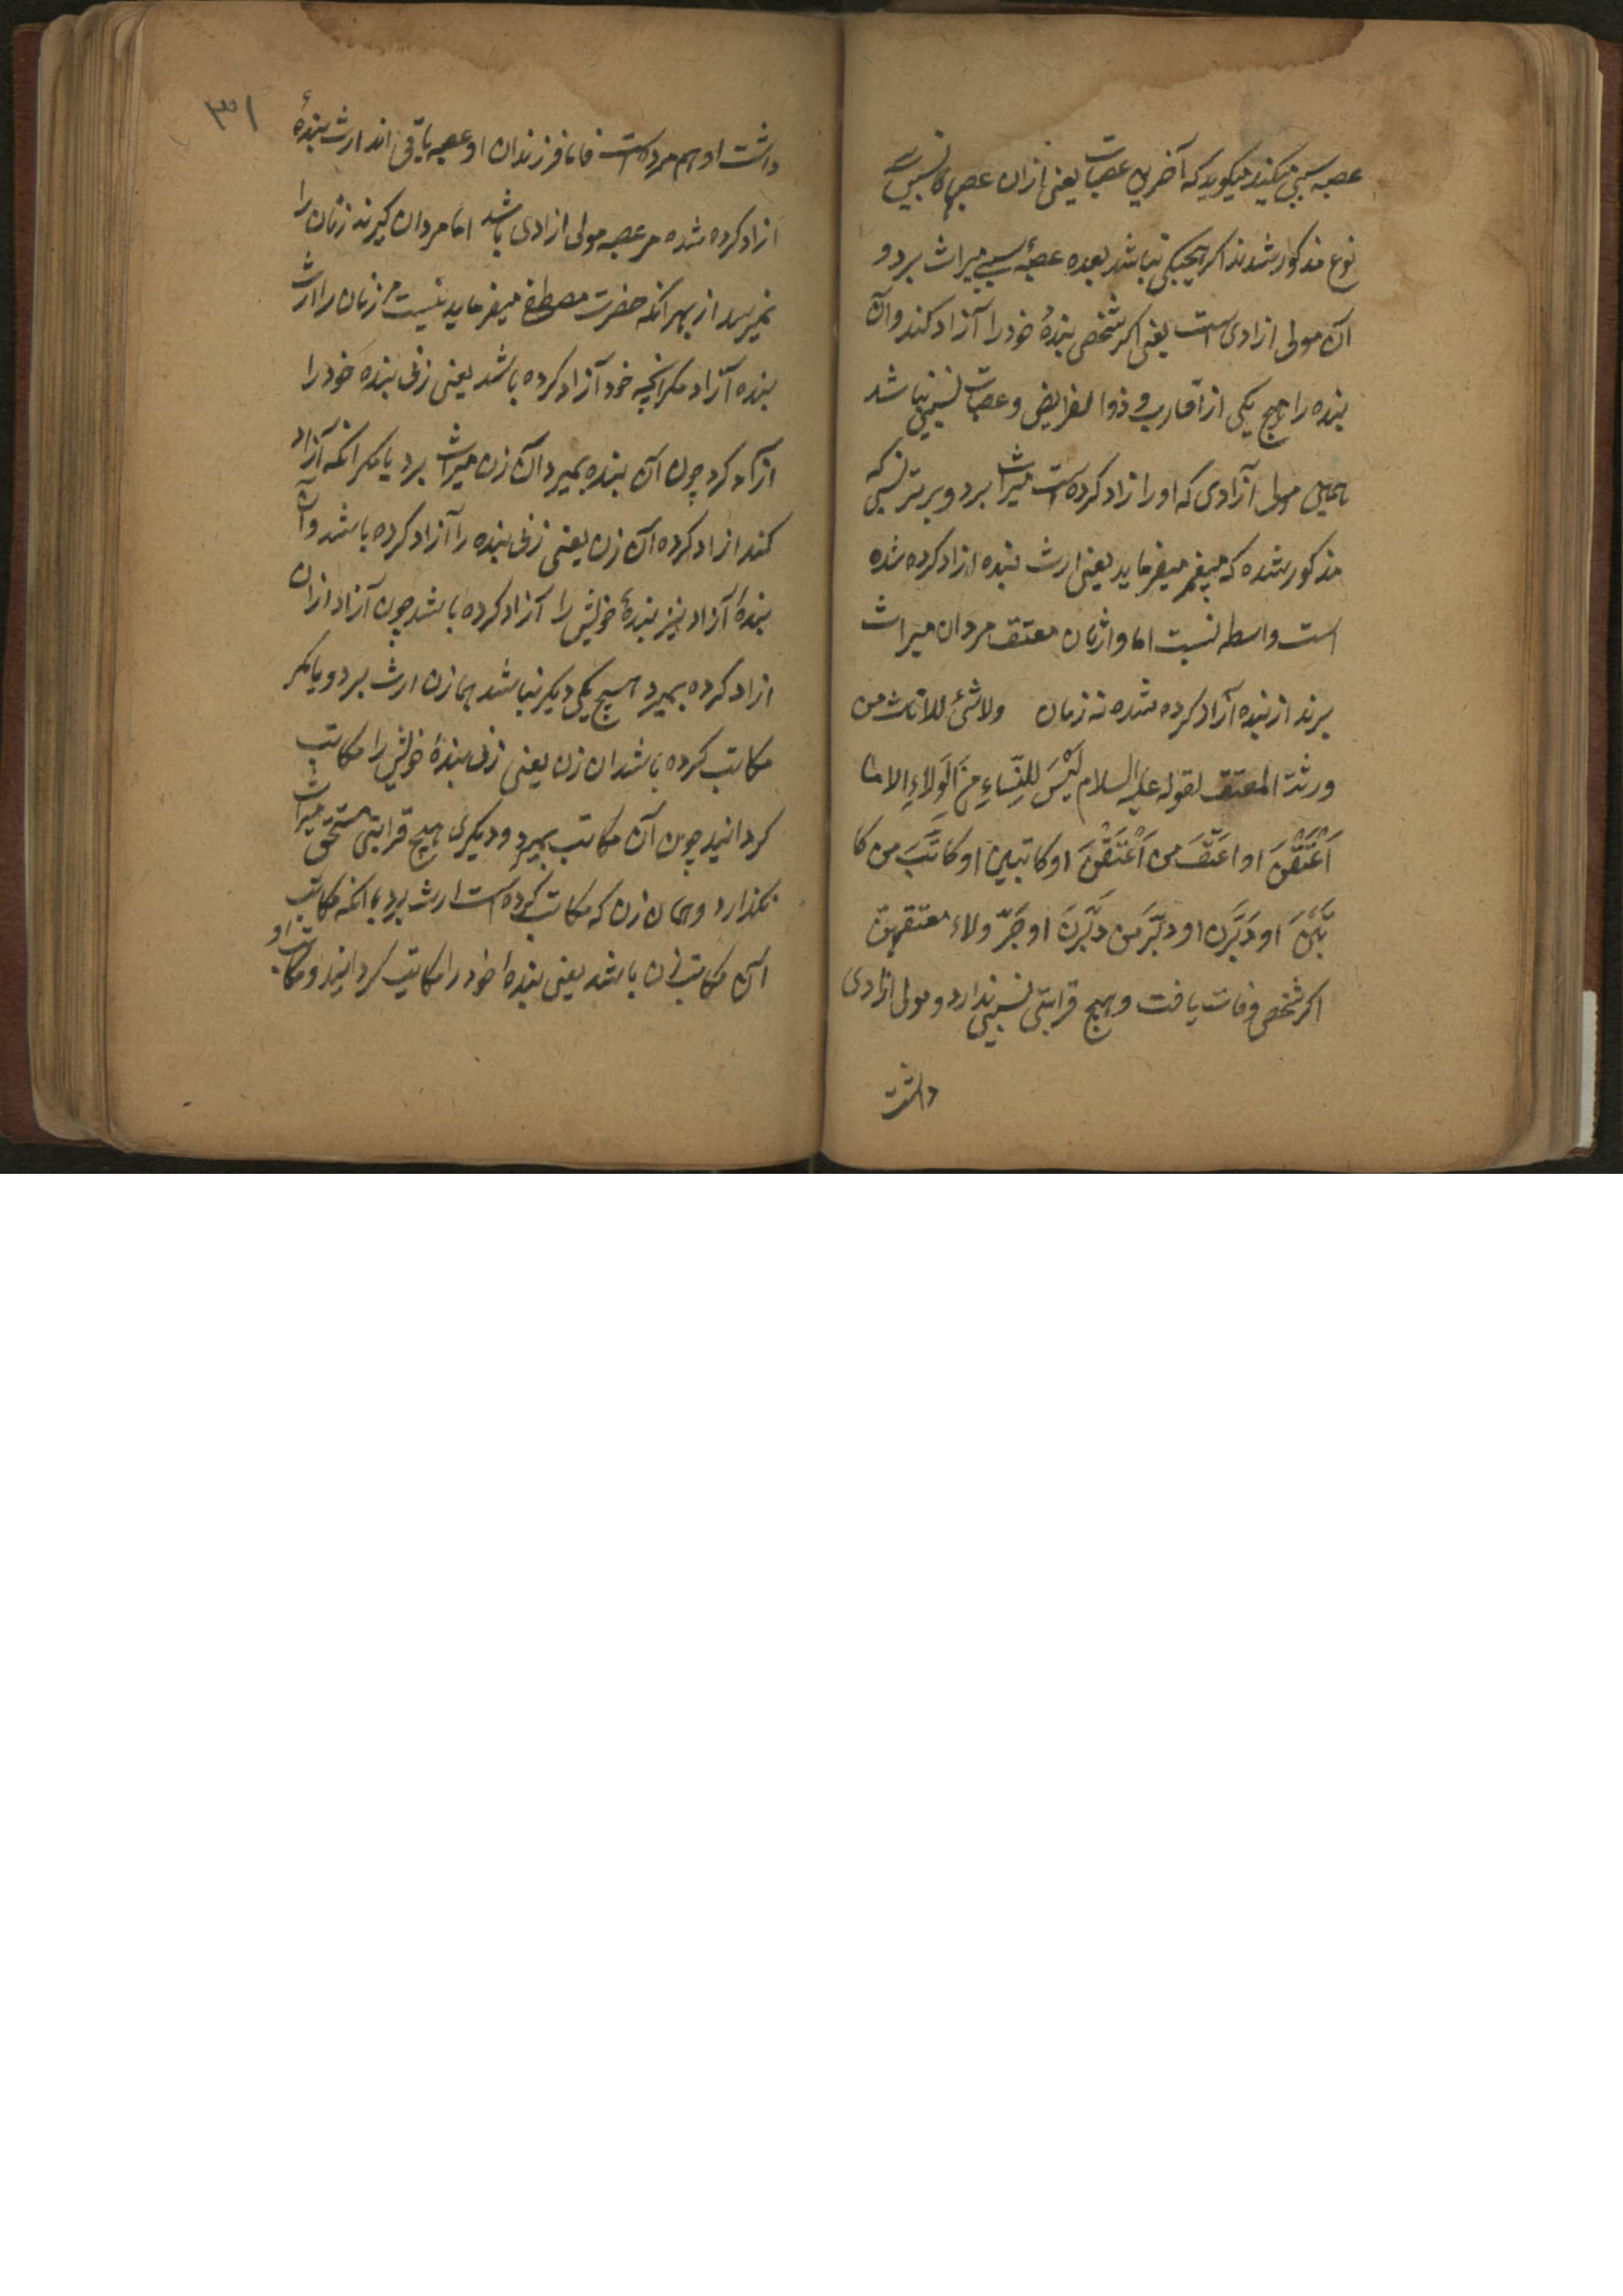 عصبه سببی میکند میکوید که آخرین عصبات یعنی ازان عصبهاکه نسبی سه
نوع مذکور شدند اکر هیچیکی نباشد بعده عصبهٔ سببی میراث برد و
آن مولی ازادی است یعنی اکر شخصی بندهٔ خود را آزاد کند و آن
بنده را هیچ یکی از اقارب و ذوا لفرایض و عصبات نسبی نباشد
همین مولی آزادی که او را ازاد کرده است میراث برد و بر ترتیبی که
مذکور شده که پیغمبر میفرماید یعنی ارث بنده ازاد کرده شده
است واسطه نسبت اما وارثان معتق مردان میراث
برند از بنده آزاد کرده شده نه زنان ولا شئ للاناث من
ورثة المعتق لقوله علیه السلام لَیْسَ لِلنِّسَاءِ مِنَ الْوَلَاءِ الا ما
اَعْتَقْنَ او اعتَقَ من اَعْتَقْنَ او کاتبین او کاتَبَ من کا
تَبْنَ او دَبَّرن او دبَّرَ من دَبَّرنَ او جَرَّ ولاء معتقهنّ
اکر شخصی وفات یافت و هیچ قرابتی نسبی ندارد و مولی ازادی
داشت
۳۱
داشت او هم مرده است فاما فرزندان او عصبه باقی اند ارث بندهٔ
ازاد کرده شده مر عصبه مولی ازادی باشد اما مردان کیرند زنان را
نمیرسد از بهر انکه حضرت مصطفی میفرماید نیست مر زنان را ارث
بنده آزاد مکر انچه خود آزاد کرده باشد یعنی زنی بنده خود را
ازاد کرد چون آن بنده بمیرد آن زن میراث برد یا مکر انکه آزاد
کند ازاد کرده آن زن یعنی زنی بنده را آزاد کرده باشد و آن
بندهٔ آزاد نیز بندهٔ خویش را آزاد کرده باشد چون آزاد ازان
ازاد کرده بمیرد هیچ یکی دیکر نباشد همان زن ارث برد و یا مکر
مکاتب کرده باشد ان زن یعنی زنی بندهٔ خویش را مکاتب
کردانید چون آن مکاتب بمیرد و دیکری هیچ قرابتی مستحق میراث
نکذارد و همان زن که مکاتب کرده است ارث برد یا انکه مکاتب
آن مکاتب زن باشد یعنی بندهٔ خود را مکاتب کردانید و مکاتب او